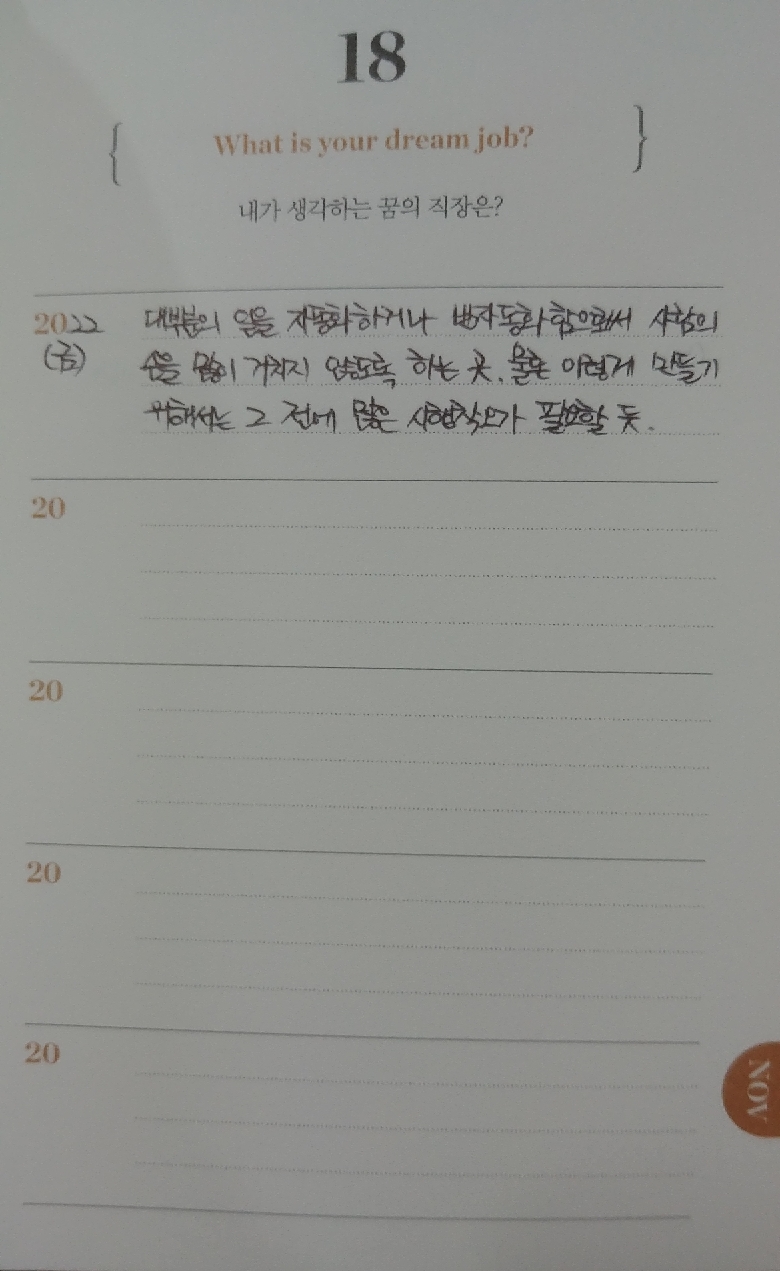 18
What is your dream job?
내가 생각하는 꿈의 직장은?
2022 대부분의 일을 자동화하거나 반자동화함으로써 사람의
(금) 손을 많이 거치지 않도록 하는 곳. 물론 이렇게 만들기
위해서는 그 전에 많은 시행착오가 필요할 듯.
20
20
20
20
NOV